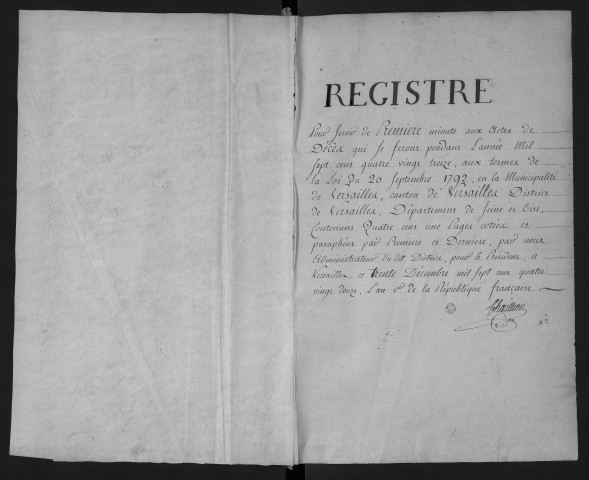 REGISTRE
Pour servir de Premiere minute aux Actes de
Décès qui se feront pendant l'année Mil
sept cent quatre vingt treize, aux termes de
la Loi du 20 Septembre 1792, en la Municipalité
de Versailles, canton de Versailles District
de Versailles, Département de Seine et Oise,
Contenant Quatre cent une Pages cotées et
paraphées par Premiere et Derniere, par nous
Administrateur du dit District, pour le Président, a
Versailles, ce trente Décembre mil sept cent quatre
vingt douze, L'an 1er de la République française.